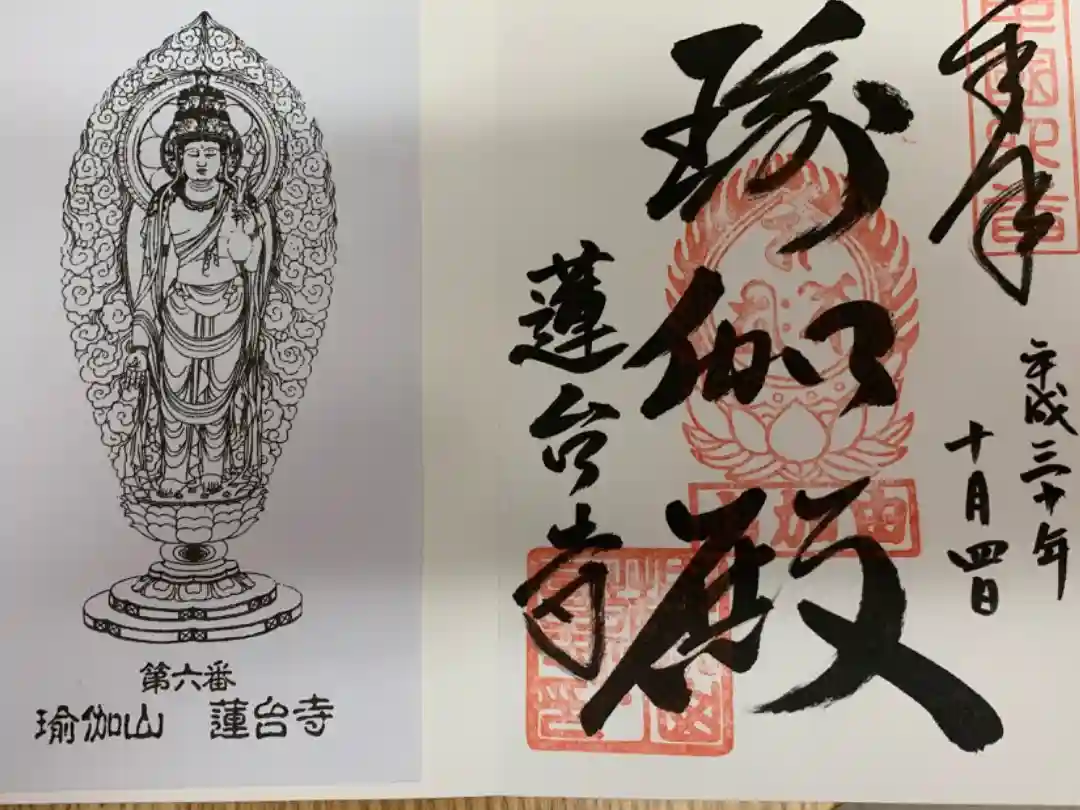 奉拝
平成三十年
十月四日
瑜伽殿
由加
蓮台寺
第六番
瑜伽山　蓮台寺